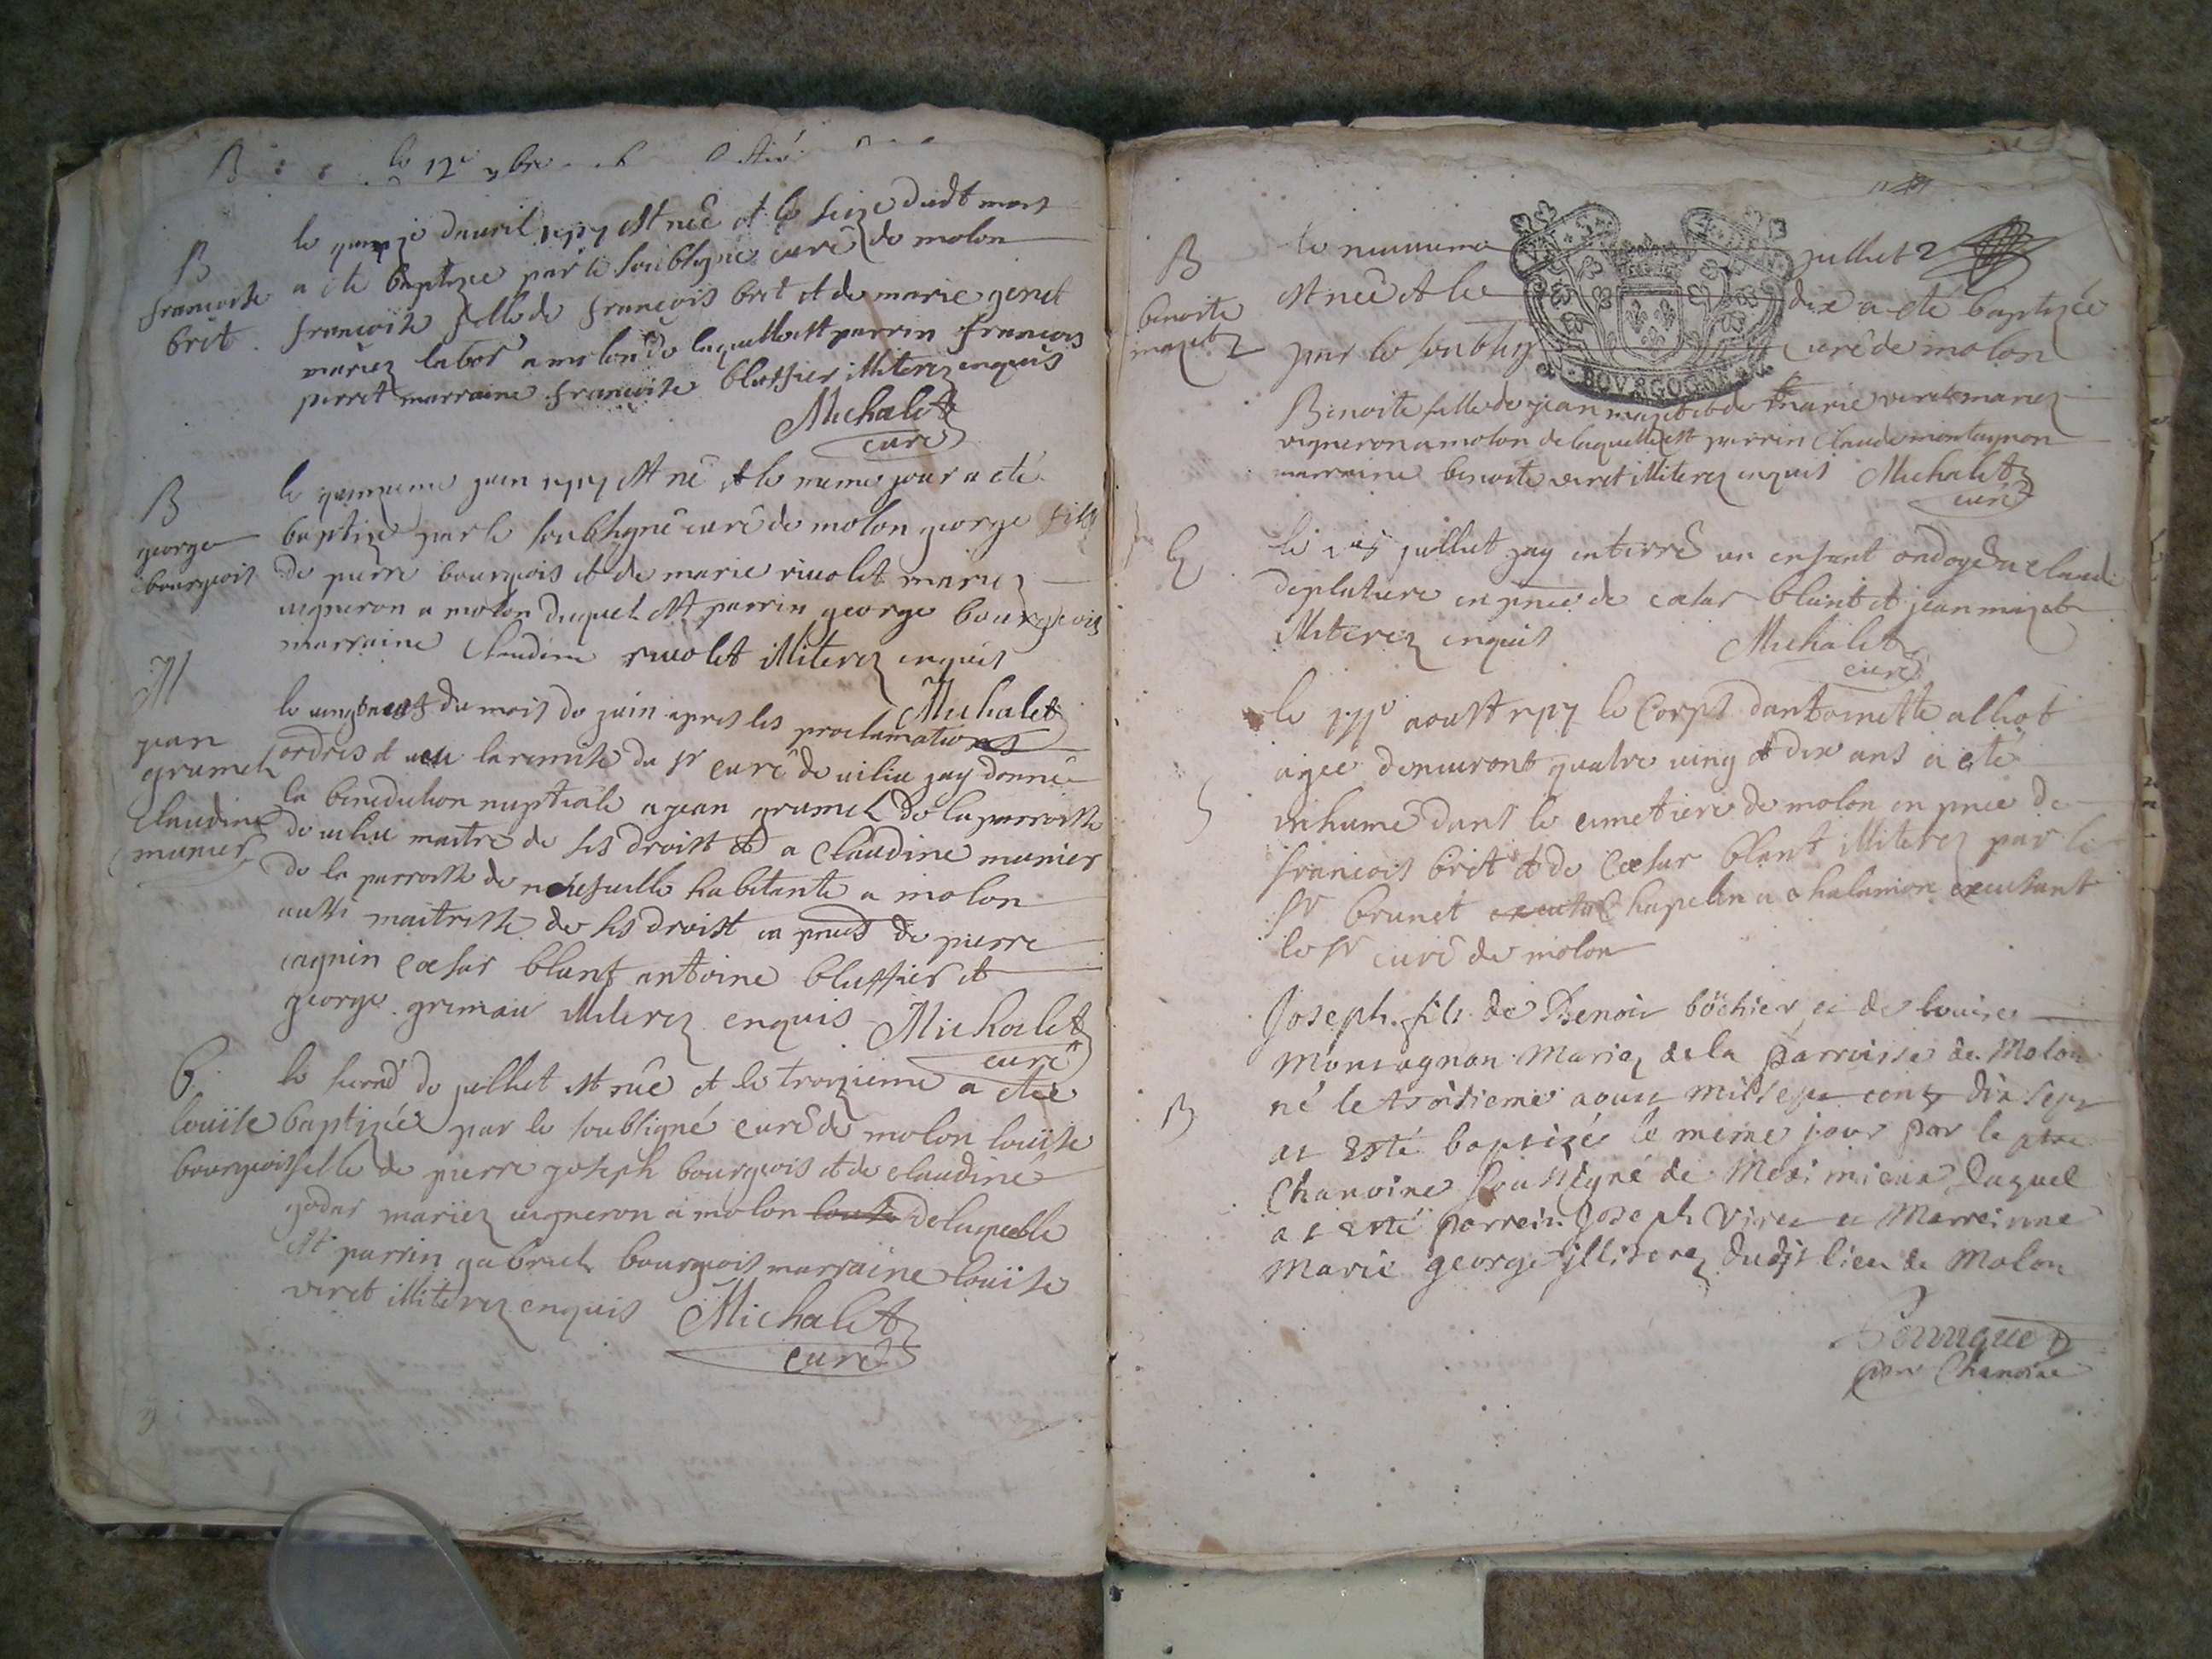 B le 12e
B
francoise
bret
le quinze davril 1717 est neé et le seize dudt mois
a eté baptizeé par le soubsigné curé de molon
francoise fille de françois bret et de marie genet
mariez labor a molon de laquelle est parrin francois
perret marraine francoise blessier illiterez enquis
Michalet
curé
B
george
bourgeois
le quinzieme juin 1717 est né et le meme jour a eté
baptizé par le soubsigné curé de molon george fils
de pierre bourgeois et de marie riuolet mariez
uigneron a molon duquel est parrin george bourgeois
marraine Claudine riuolet illiterez enquis
Michalet
M
jean
grumel
Claudine
munier
le uingtneuf du mois de juin apres les proclamations
ordres et ueu la remise du sr curé de uiliu jay donné
la benediction nuptiale a jean grumel de la parroisse
de uiliu maitre de ses droist et a Claudine munier
de la parroisse de habitante a molon
aussi maitresse de ses droist en pnce de pierre
cagnin cœsar blanf antoine blessier et
george grimau illiterez enquis Michalet
curé
B
louise
bourgeois
le second de juillet est neé et le troizieme a eteé
baptizeé par le soubsigné curé de molon louise
fille de pierre joseph bourgeois et de claudine
godar mariez uigneron a molon louise de laquelle
est parrin gabriel bourgeois marraine louise
veret illiterez enquis Michalet
curé
B
benoite
mazet
le neuuieme juillet
est neé et le dix a eté baptizeé
par le soubsig curé de molon
BOVRGOGNE
Benoite fille de jean mazet et de marie veret mariez
vigneron a molon de laquelle est parrin Claude montagnon
marraine benoite veret illiterez enquis Michalet
curé
E
le juillet jay enterré un enfant ondoyé de claude
deplature en pnce de cœsar blanf et jean mazet
illiterez enquis Michalet
curé
S
le aoust 1717 le Corps dantoinette alliot
agee denuiront quatre uing et dix ans a eté
inhumé dans le cimetiere de molon en pnce de
francois bret et de Cœsar blanf illiterez par le
sr brunet Chapelin a chalamon excusant
le sr curé de molon
B
Joseph fils de Benoit bôchier et de louise
Montagnon Mariez de la parroisse de Molon
né le troisieme aout mil sept cent dix sept
at esté baptizé le meme jour par le ptre
Chanoine soussigné de Meximieux, duquel
at esté parrein Joseph Viret et Marreinne
Marie george illiterez dudit lieu de Molon
ptre Chanoine